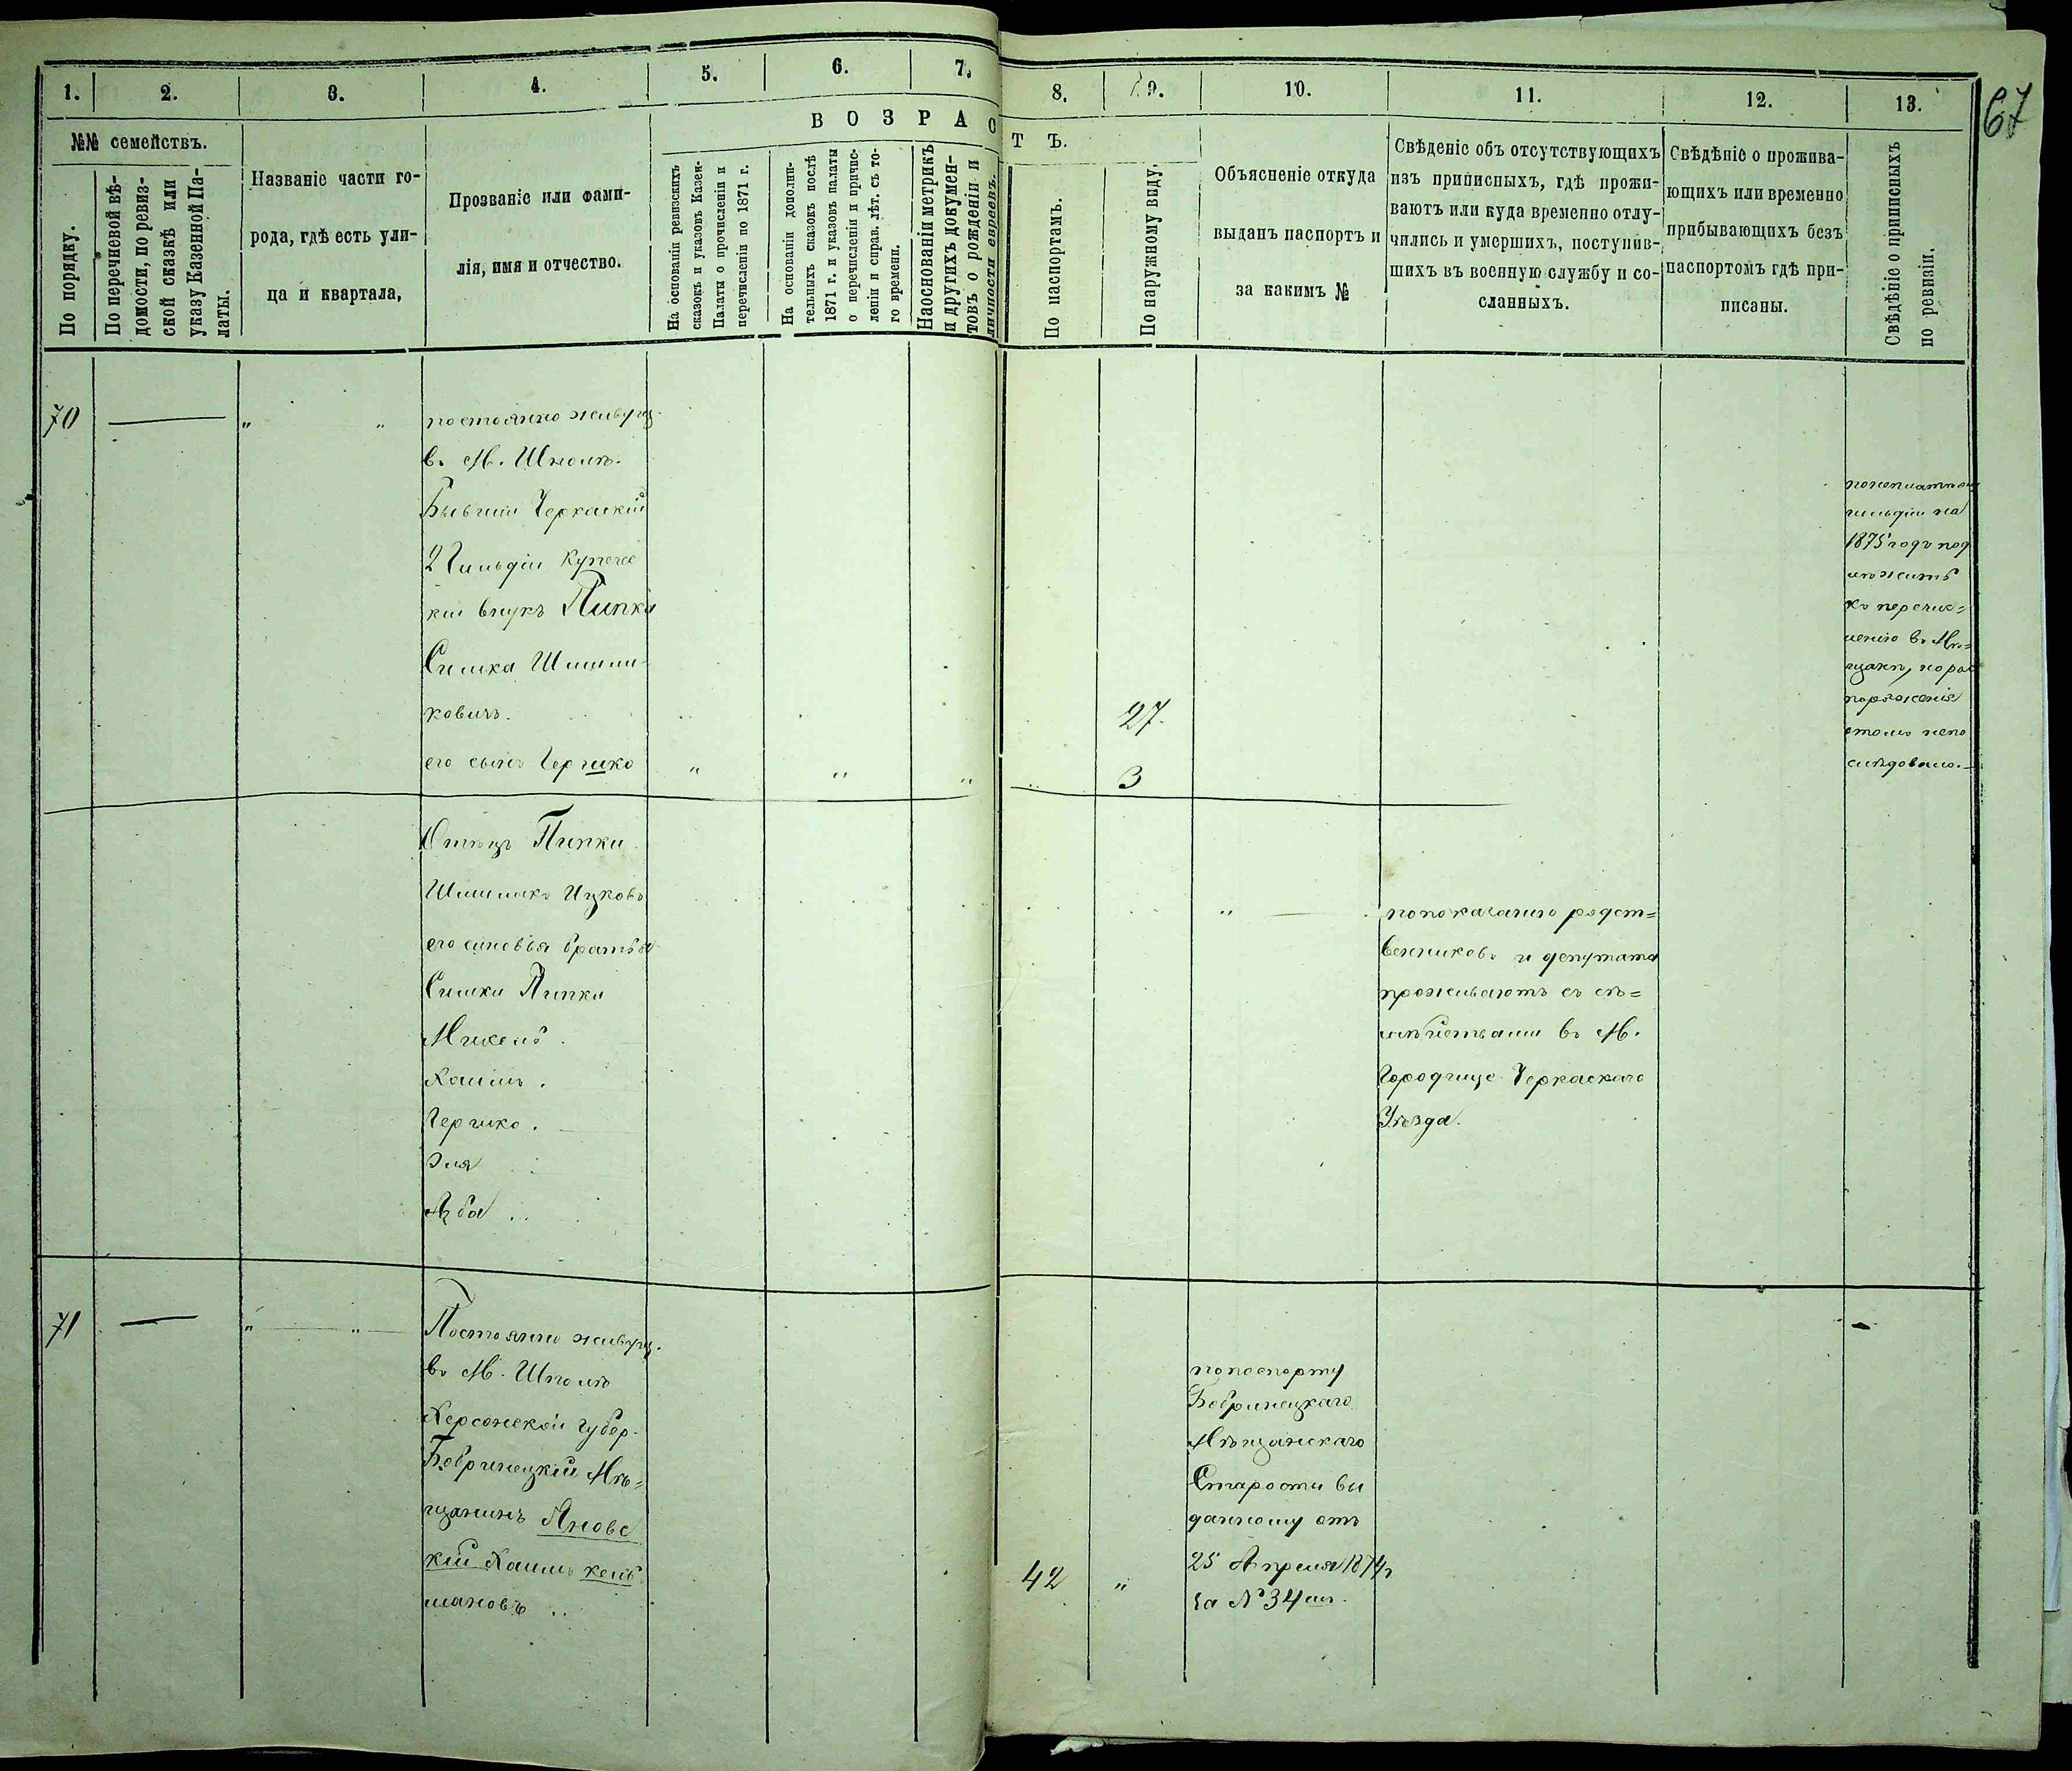 1.
2.
3.
4.
5.
6.
7.
8.
9.
10.
11.
12.
13.
67
№№ семействъ.
По порядку.
По перечневой вѣ-
домости, по ревиз-
ской сказкѣ или
указу Казенной Па-
латы.
Названіе части го-
рода, гдѣ есть ули-
ца и квартала,
Прозваніе или фами-
лія, имя и отчество.
ВОЗРАСТЪ.
На основаніи ревизскихъ
сказокъ и указовъ Казен-
Палаты о прочисленіи и
перечисленіи по 1871 г.
На основаніи дополни-
тельныхъ сказокъ послѣ
1871 г. и указовъ палаты
о перечисленіи и причис-
леніи и справ. лѣт. съ то-
го времени.
На основаніи метрикъ
и другихъ докумен-
товъ о рожденіи и
личности евреевъ.
По паспортамъ.
По наружному виду.
Объясненіе откуда
выданъ паспортъ и
за какимъ №
Свѣденіе объ отсутствующихъ
изъ приписныхъ, гдѣ прожи-
ваютъ или куда временно отлу-
чились и умершихъ, поступив-
шихъ въ военную службу и со-
сланныхъ.
Свѣдѣніе о прожива-
ющихъ или временно
прибывающихъ безъ
паспортомъ гдѣ при-
писаны.
Свѣдѣніе о приписныхъ
по ревизіи.
70
постоянно живущ.
в. М. Шполѣ.
Бывшій Черкаскій
2 Гильдіи Купечес
кій внукъ Пипка
Симка Шлиминковичъ.
27.
его сынъ Гершко
3
гильдіи на
1875 годъ под
лежитъ
къ перечис=
ленію въ Мѣ=
щане, но рас
поряженія
о томъ непо
слѣдовало.
Отецъ Пипки
Ицковъ
его сыновья братья
Симки Пипки
Михель.
Хаимъ.
Гершко.
Эля
Аба
по показанію родст=
венниковъ и депутата
проживаютъ съ се=
мѣйствами въ М.
Городище Черкаскаго
Уѣзда.
71
Постоянно живущ.
въ М. Шполѣ
Херсонской Губер.
Бобринецкій Мѣ=
щанинъ Яновс
кій Хаимъ Кель
мановъ
42
по паспорту
Бобринецкаго
Мѣщанскаго
Старосты вы
данному отъ
25 Апреля 1874 г
за № 34 мъ.